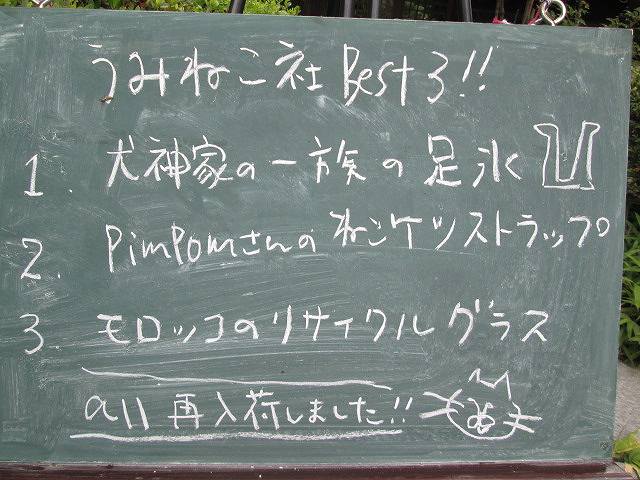 うみねこ社 Best 3!!
1. 犬神家の一族の足氷
2. PimPomさんのねこケツストラップ
3. モロッコのリサイクルグラス
all 再入荷しました!!